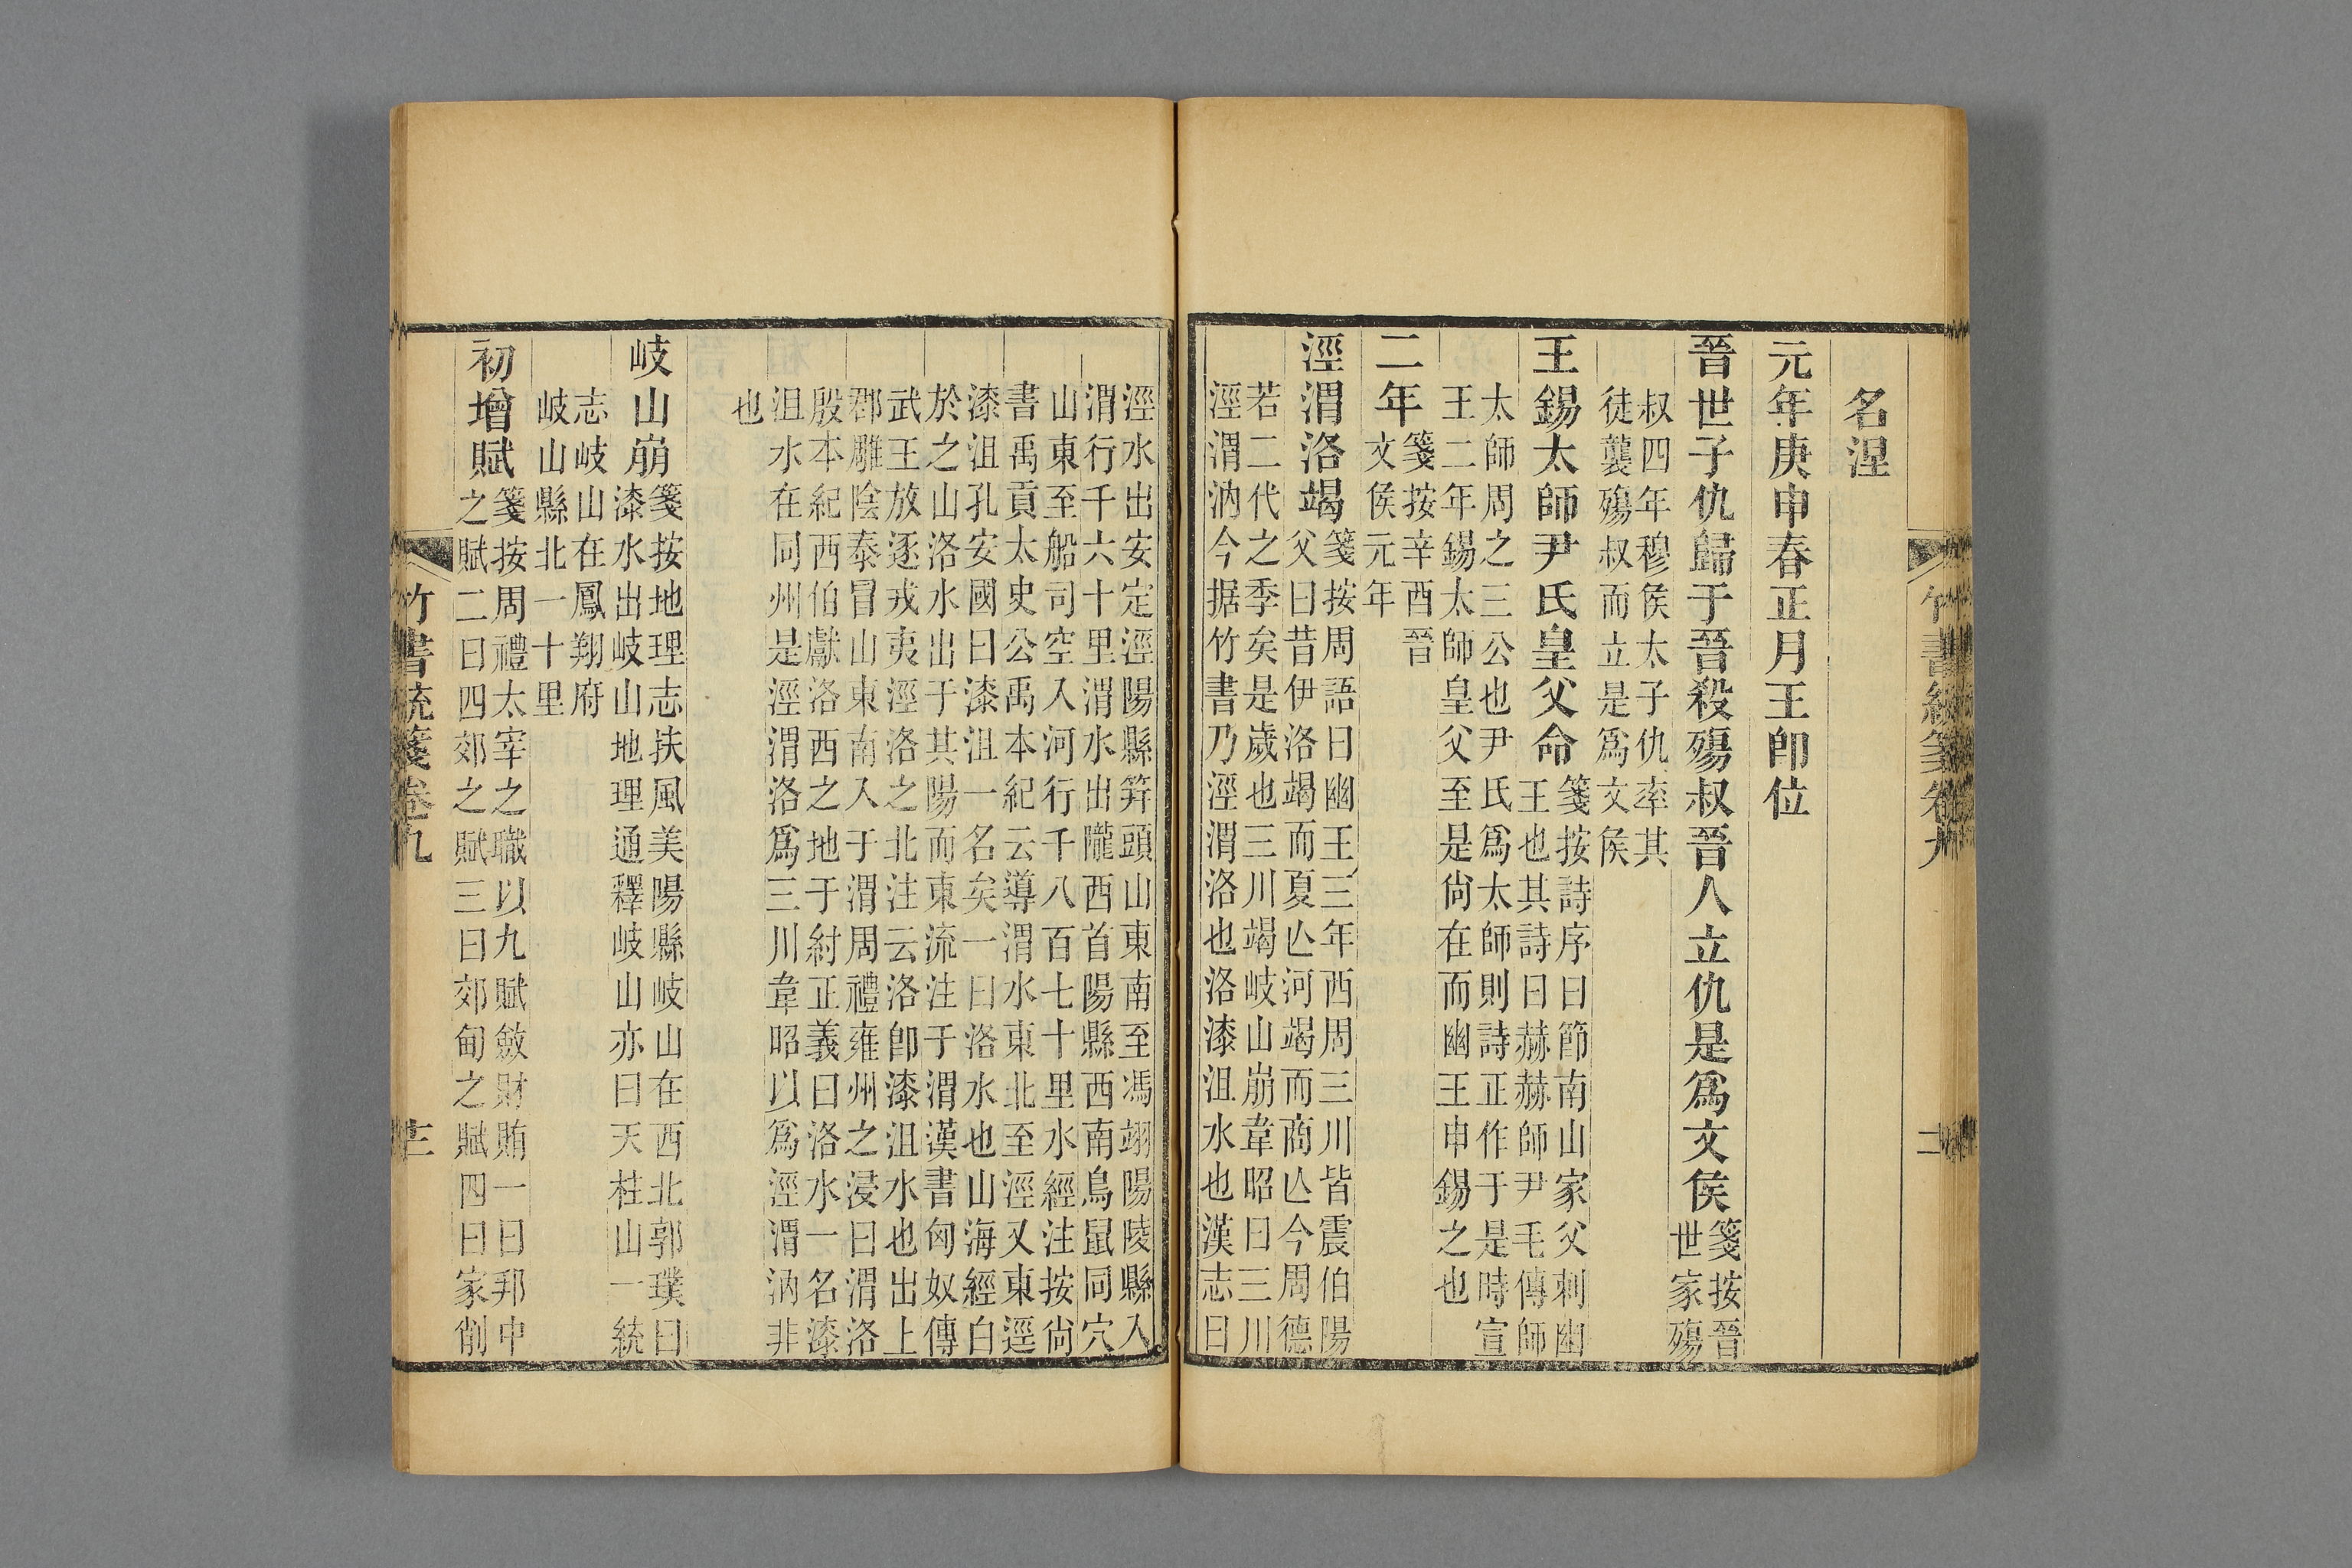 名涅
元年庚申春正月王卽位
晉世子仇歸于晉殺殤叔晉人立仇是爲文侯
箋按晉
世家殤
叔四年穆侯太子仇率其
徒襲殤叔而立是爲文侯
王錫太師尹氏皇父命
箋按詩序曰節南山家父刺幽
王也其詩曰赫赫師尹毛傳師
太師周之三公也尹氏爲太師則詩正作于是時宣
王二年錫太師皇父至是尙在而幽王申錫之也
二年
箋按辛酉晉
文侯元年
涇渭洛竭
箋按周語曰幽王三年西周三川皆震伯陽
父曰昔伊洛竭而夏亾河竭而商亾今周德
若二代之季矣是歲也三川竭岐山崩韋昭曰三川
涇渭汭今据竹書乃涇渭洛也洛漆沮水也漢志曰
涇水出安定涇陽縣笄頭山東南至馮翊陽陵縣入
渭行千六十里渭水出隴西首陽縣西南鳥鼠同穴
山東至船司空入河行千八百七十里水經注按尙
書禹貢太史公禹本紀云導渭水東北至涇又東逕
漆沮孔安國曰漆沮一名矣一曰洛水也山海經白
於之山洛水出于其陽而東流注于渭漢書匈奴傳
武王放逐戎夷涇洛之北注云洛卽漆沮水也出上
郡雕陰泰冒山東南入于渭周禮雍州之浸曰渭洛
殷本紀西伯獻洛西之地于紂正義曰洛水一名漆
沮水在同州是涇渭洛爲三川韋昭以爲涇渭汭非
也
岐山崩
箋按地理志扶風美陽縣岐山在西北郭璞曰
漆水出岐山地理通釋岐山亦曰天柱山一統
志岐山在鳳翔府
岐山縣北一十里
初增賦
箋按周禮太宰之職以九賦斂財賄一曰邦中
之賦二曰四郊之賦三曰郊甸之賦四曰家削
竹書統箋卷九